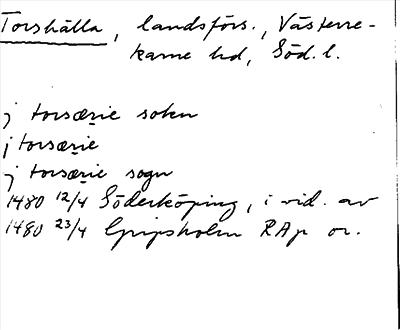 Torshälla, landsförs., Västerre-
karne hd, Söd. l.
j torsærie soken
j torsærie
j torsærie sogn
1480 12/4 Söderköping, i vid. av
1480 23/4 Gripsholm RAp or.